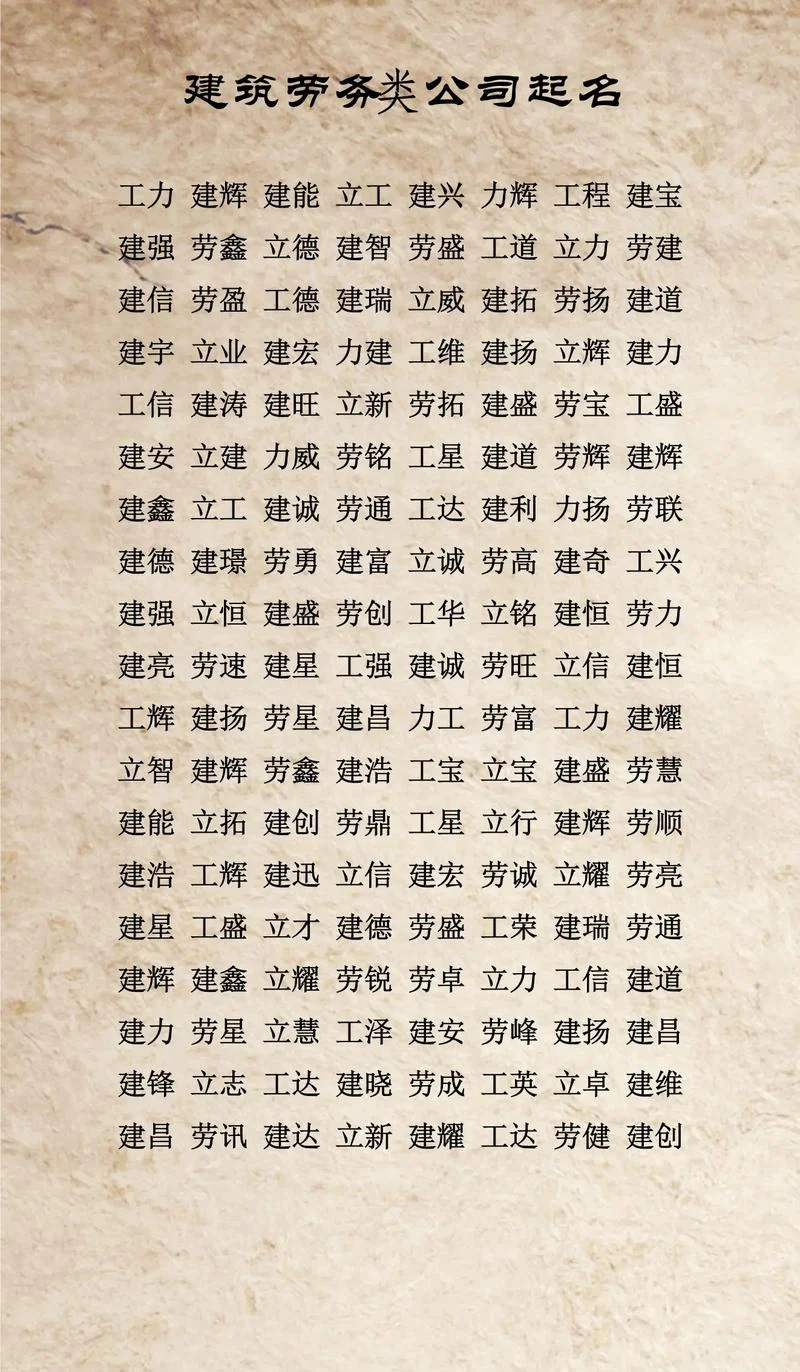 建筑劳务类公司起名
工力 建辉 建能 立工 建兴 力辉 工程 建宝
建强 劳鑫 立德 建智 劳盛 工道 立力 劳建
建信 劳盈 工德 建瑞 立威 建拓 劳扬 建道
建宇 立业 建宏 力建 工维 建扬 立辉 建力
工信 建涛 建旺 立新 劳拓 建盛 劳宝 工盛
建安 立建 力威 劳铭 工星 建道 劳辉 建辉
建鑫 立工 建诚 劳通 工达 建利 力扬 劳联
建德 建璟 劳勇 建富 立诚 劳高 建奇 工兴
建强 立恒 建盛 劳创 工华 立铭 建恒 劳力
建亮 劳速 建星 工强 建诚 劳旺 立信 建恒
工辉 建扬 劳星 建昌 力工 劳富 工力 建耀
立智 建辉 劳鑫 建浩 工宝 立宝 建盛 劳慧
建能 立拓 建创 劳鼎 工星 立行 建辉 劳顺
建浩 工辉 建迅 立信 建宏 劳诚 立耀 劳亮
建星 工盛 立才 建德 劳盛 工荣 建瑞 劳通
建辉 建鑫 立耀 劳锐 劳卓 立力 工信 建道
建力 劳星 立慧 工泽 建安 劳峰 建扬 建昌
建锋 立志 工达 建晓 劳成 工英 立卓 建维
建昌 劳讯 建达 立新 建耀 工达 劳健 建创